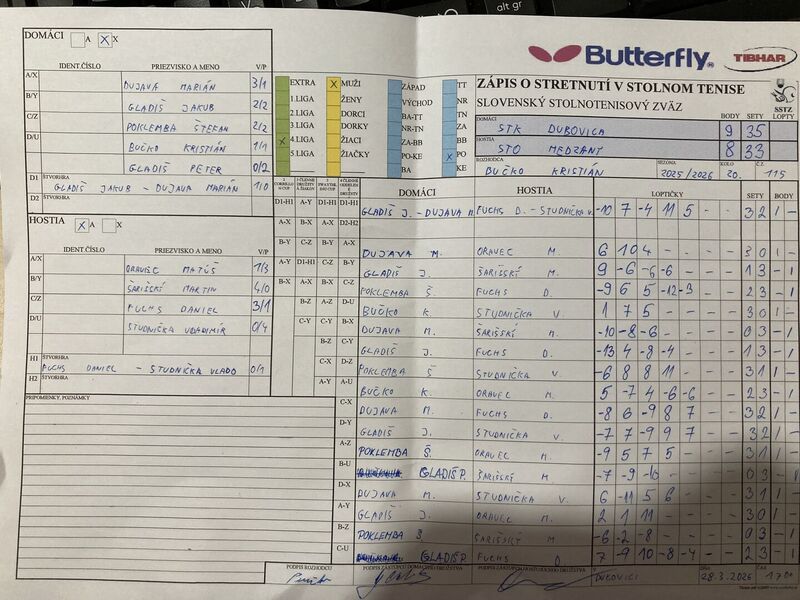 alt gr
DOMÁCI A X X
IDENT.ČÍSLO PRIEZVISKO A MENO V/P
A/X DUJAVA MARIÁN 3/1
B/Y GLADIŠ JAKUB 2/2
C/Z POKLEMBA ŠTEFAN 2/2
D/U BUČKO KRISTIÁN 1/1
GLADIŠ PETER 0/2
D1 ŠTVORHRA
GLADIŠ JAKUB - DUJAVA MARIÁN 1/0
D2 ŠTVORHRA
HOSTIA X A X
IDENT.ČÍSLO PRIEZVISKO A MENO V/P
A/X ORAVEC MATÚŠ 1/3
B/Y ŠARIŠSKÝ MARTIN 4/0
C/Z FUCHS DANIEL 3/1
D/U STUDNIČKA VLADIMÍR 0/4
H1 ŠTVORHRA
FUCHS DANIEL - STUDNIČKA VLADO 0/1
H2 ŠTVORHRA
PRIPOMIENKY, POZNÁMKY
EXTRA X MUŽI ZÁPAD TT
1.LIGA ŽENY VÝCHOD NR
2.LIGA DORCI BA-TT TN
3.LIGA DORKY NR-TN ZA
X 4.LIGA ŽIACI ZA-BB BB
5.LIGA ŽIAČKY PO-KE X PO
BA KE
Butterfly TIBHAR
ZÁPIS O STRETNUTÍ V STOLNOM TENISE
SLOVENSKÝ STOLNOTENISOVÝ ZVÄZ SSTZ
BODY SETY LOPTY
DOMÁCI STK DUBOVICA 9 35
HOSTIA STO MEDZANY 8 33
ROZHODCA SEZÓNA KOLO Č.Z.
BUČKO KRISTIÁN 2025/2026 20. 115
DOMÁCI HOSTIA LOPTIČKY SETY BODY
D1-H1 A-Y D1-H1 D1-H1 GLADIŠ J. - DUJAVA M. FUCHS D. - STUDNIČKA V. -10 7 -4 11 5 - - 3 2 1 -
A-X B-X A-X D2-H2
B-Y C-Z B-Y A-X DUJAVA M. ORAVEC M. 6 10 4 - - - - 3 0 1 -
A-Y D1-H1 C-Z B-Y GLADIŠ J. ŠARIŠSKÝ M. 9 -6 -6 -6 - - - 1 3 - 1
B-X A-X B-X C-Z POKLEMBA Š. FUCHS D. -9 6 5 -12 -3 - - 2 3 - 1
B-Z A-Z D-U BUČKO K. STUDNIČKA V. 1 7 5 - - - - 3 0 1 -
C-Y C-Y B-X DUJAVA M. ŠARIŠSKÝ M. -10 -8 -6 - - - - 0 3 - 1
B-Z C-Y GLADIŠ J. FUCHS D. -13 4 -8 -4 - - - 1 3 - 1
C-X D-Z POKLEMBA Š. STUDNIČKA V. -6 8 8 11 - - - 3 1 1 -
A-Y A-U BUČKO K. ORAVEC M. 5 -7 4 -6 -6 - - 2 3 - 1
C-X DUJAVA M. FUCHS D. -8 6 -9 8 7 - - 3 2 1 -
D-Y GLADIŠ J. STUDNIČKA V. -7 7 -9 9 7 - - 3 2 1 -
A-Z POKLEMBA Š. ORAVEC M. -9 5 7 5 - - - 3 1 1 -
B-U GLADIŠ P. ŠARIŠSKÝ M. -7 -9 -10 - - - - 0 3 - 1
D-X DUJAVA M. STUDNIČKA V. 6 -11 5 6 - - - 3 1 1 -
A-Y GLADIŠ J. ORAVEC M. 2 1 11 - - - - 3 0 1 -
B-Z POKLEMBA Š. ŠARIŠSKÝ M. -6 -2 -8 - - - - 0 3 - 1
C-U GLADIŠ P. FUCHS D. 7 -9 10 -8 -4 - - 2 3 - 1
PODPIS ROZHODCU PODPIS ZÁSTUPCU DOMÁCEHO DRUŽSTVA PODPIS ZÁSTUPCU HOSŤUJÚCEHO DRUŽSTVA V DŇA ČAS
DUBOVICI 28.3.2026 17:00